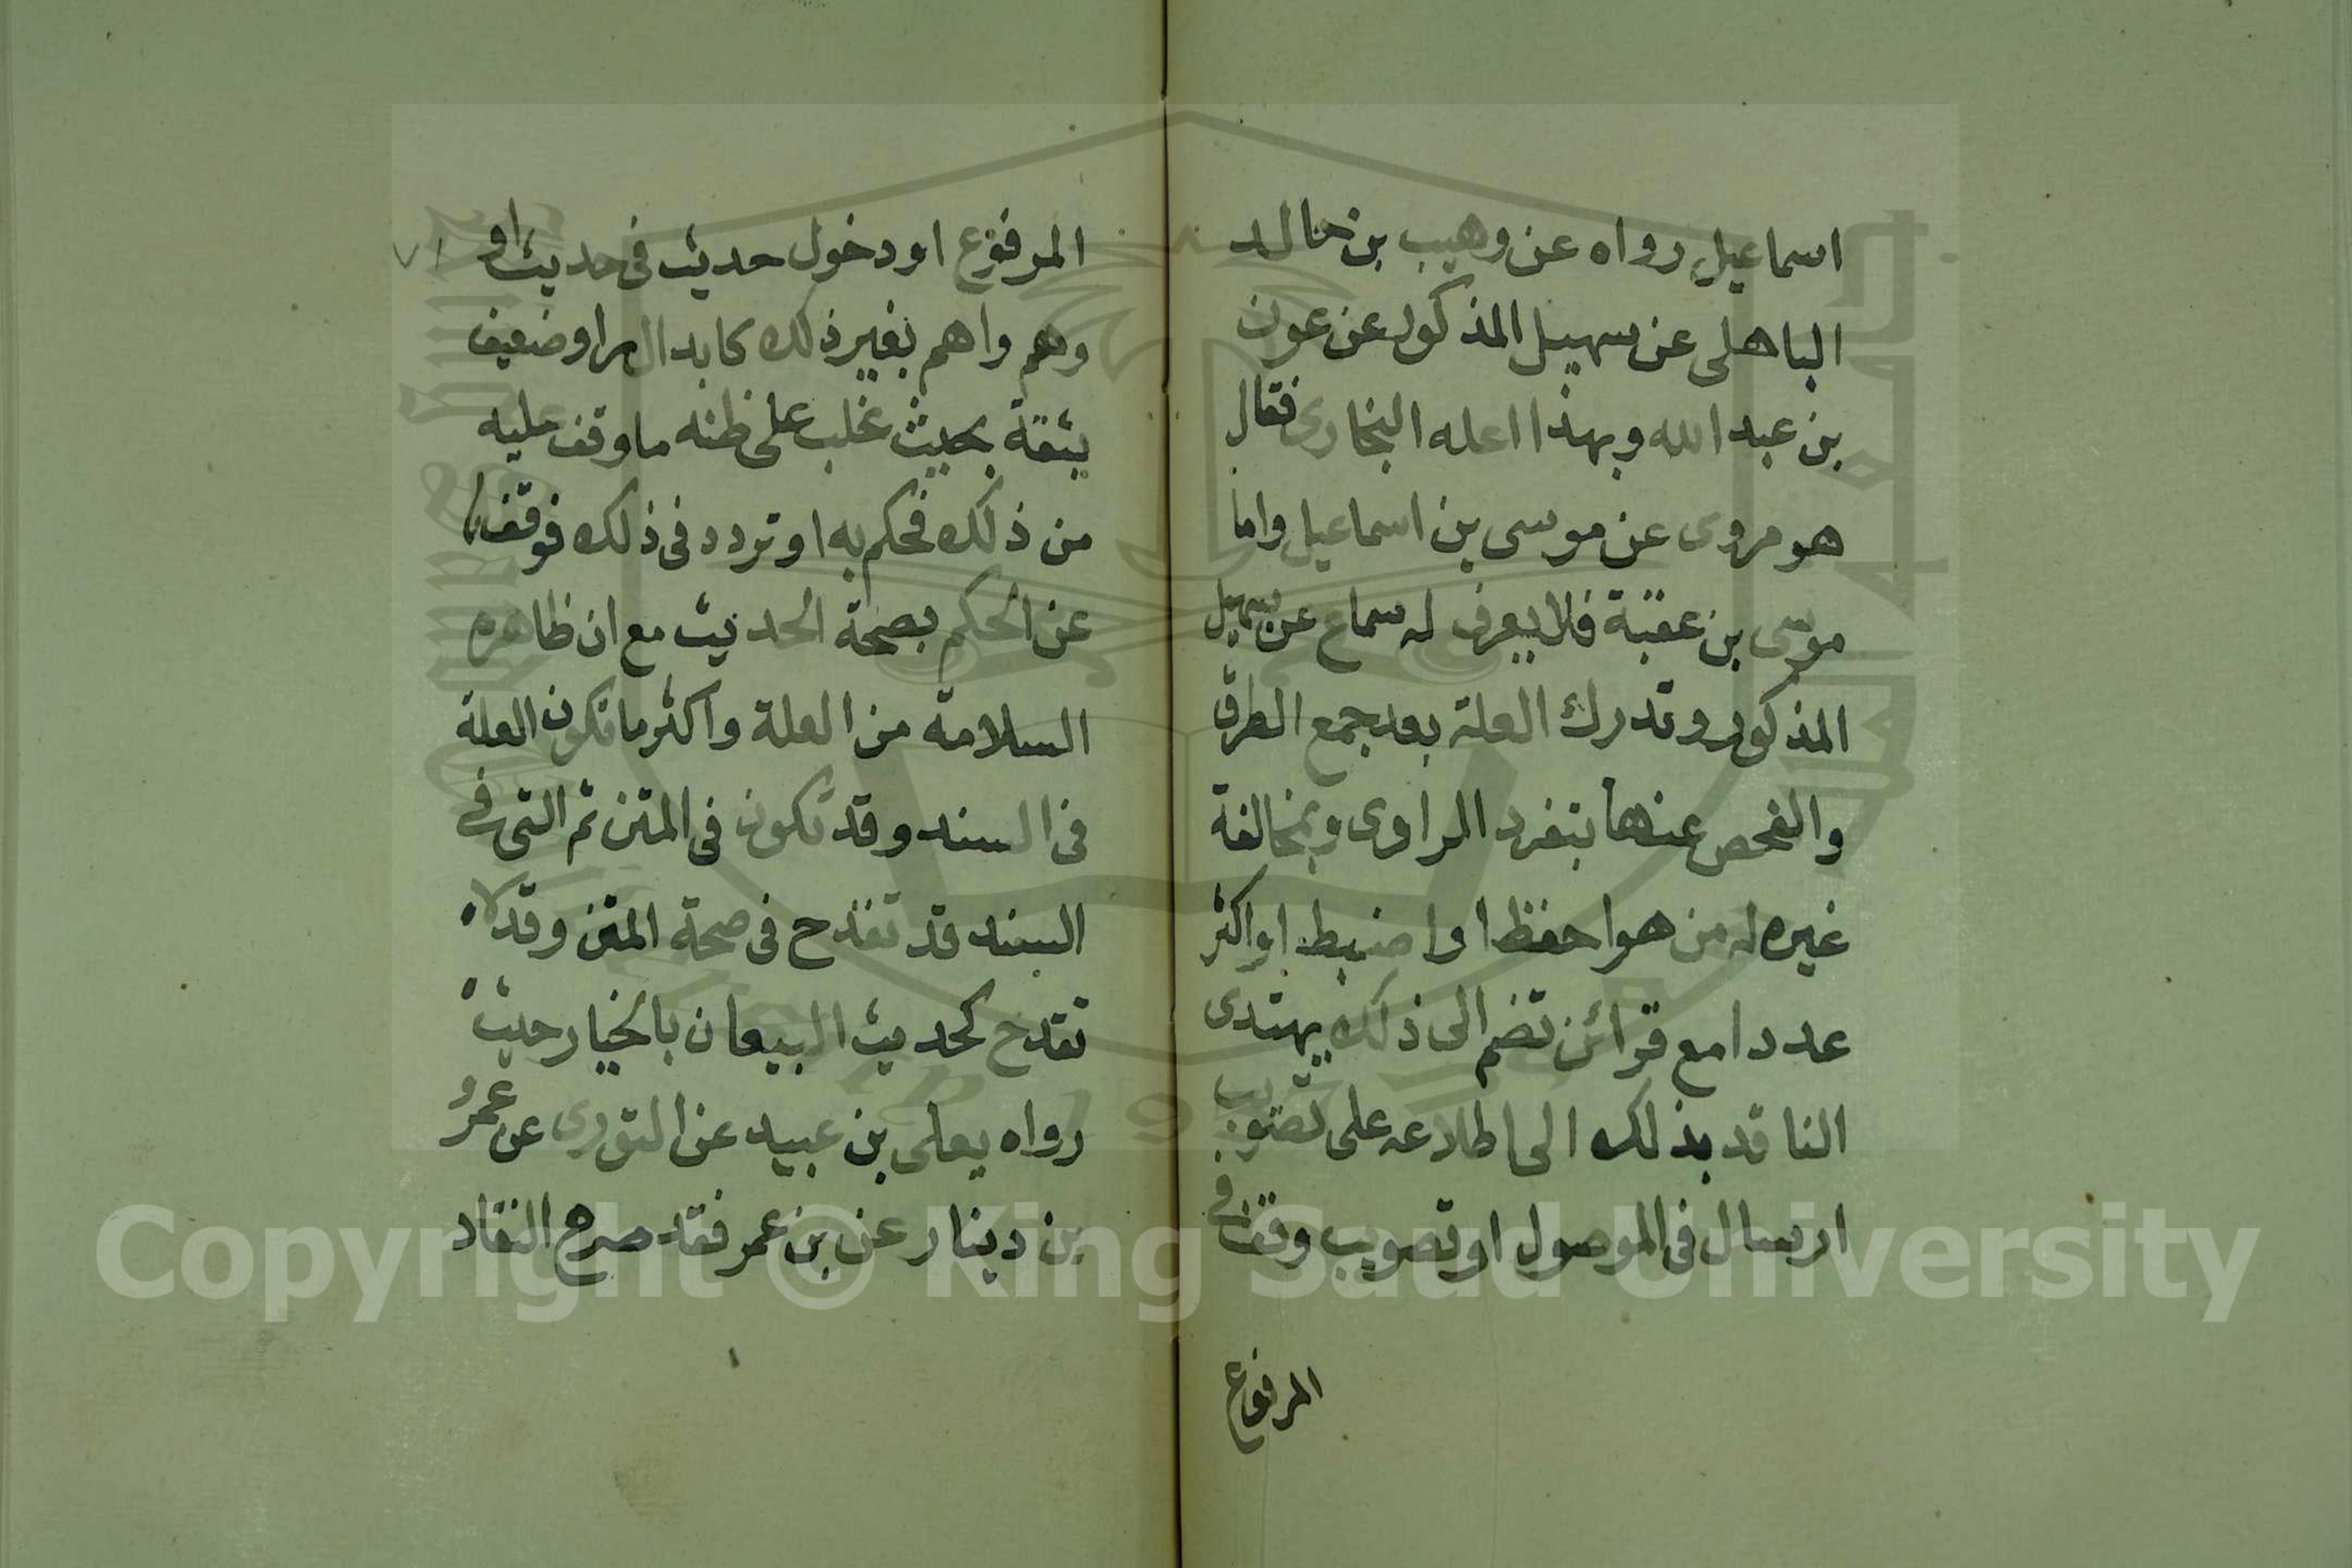 اسماعيل رواه عن وهيب بن خالد
الباهلى عن سهيل المذكور عن عون
بن عبد الله وبهذا اعله البخارى فقال
هو مروى عن موسى بن اسماعيل واما
موسى بن عقبة فلا يعرف له سماع عن سهيل
المذكور وتدرك العلة بعد جمع الطرق
والفحص عنها بتفرد الراوى وبمخالفة
غيره له من هو احفظ او اضبط او اكثر
عددا مع قرائن تضم الى ذلك يهتدى
الناقد بذلك الى اطلاعه على تصويب
ارسال فى الموصول او تصويب وقف فى
المرفوع
المرفوع او دخول حديث فى حديث او
وهم واهم بغير ذلك كابدال راو ضعيف
بثقة بحيث غلب على ظنه ما وقف عليه
من ذلك فحكم به او تردد فى ذلك فوقف
عن الحكم بصحة الحديث مع ان ظاهره
السلامة من العلة واكثر ما تكون العلة
فى السند وقد تكون فى المتن ثم التى فى
السند قد تقدح فى صحة المتن وقد لا
تقدح كحديث البيعان بالخيار حيث
رواه يعلى بن عبيد عن الثورى عن عمرو
بن دينار عن بن عمر فقد صرح النقاد
٧١
Copyright © King Saud University